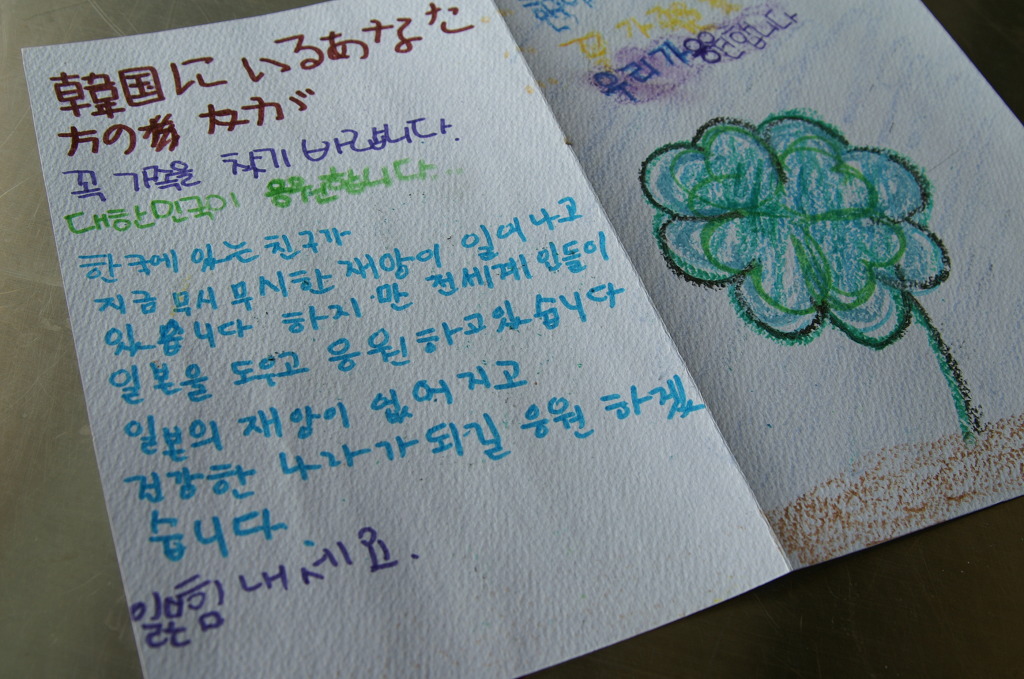 韓国にいるあなた
方の者 友力が
꼭 가족을 찾기 바랍니다.
대한민국이 응원합니다...
한국에 있는 친구가
지금 무시무시한 재앙이 일어나고
있습니다 하지만 전세계인들이
일본을 도우고 응원하고있습니다
일본의 재앙이 없어지고
건강한 나라가 되길 응원 하겠
습니다
일본힘내세요.
우리가 응원합니다